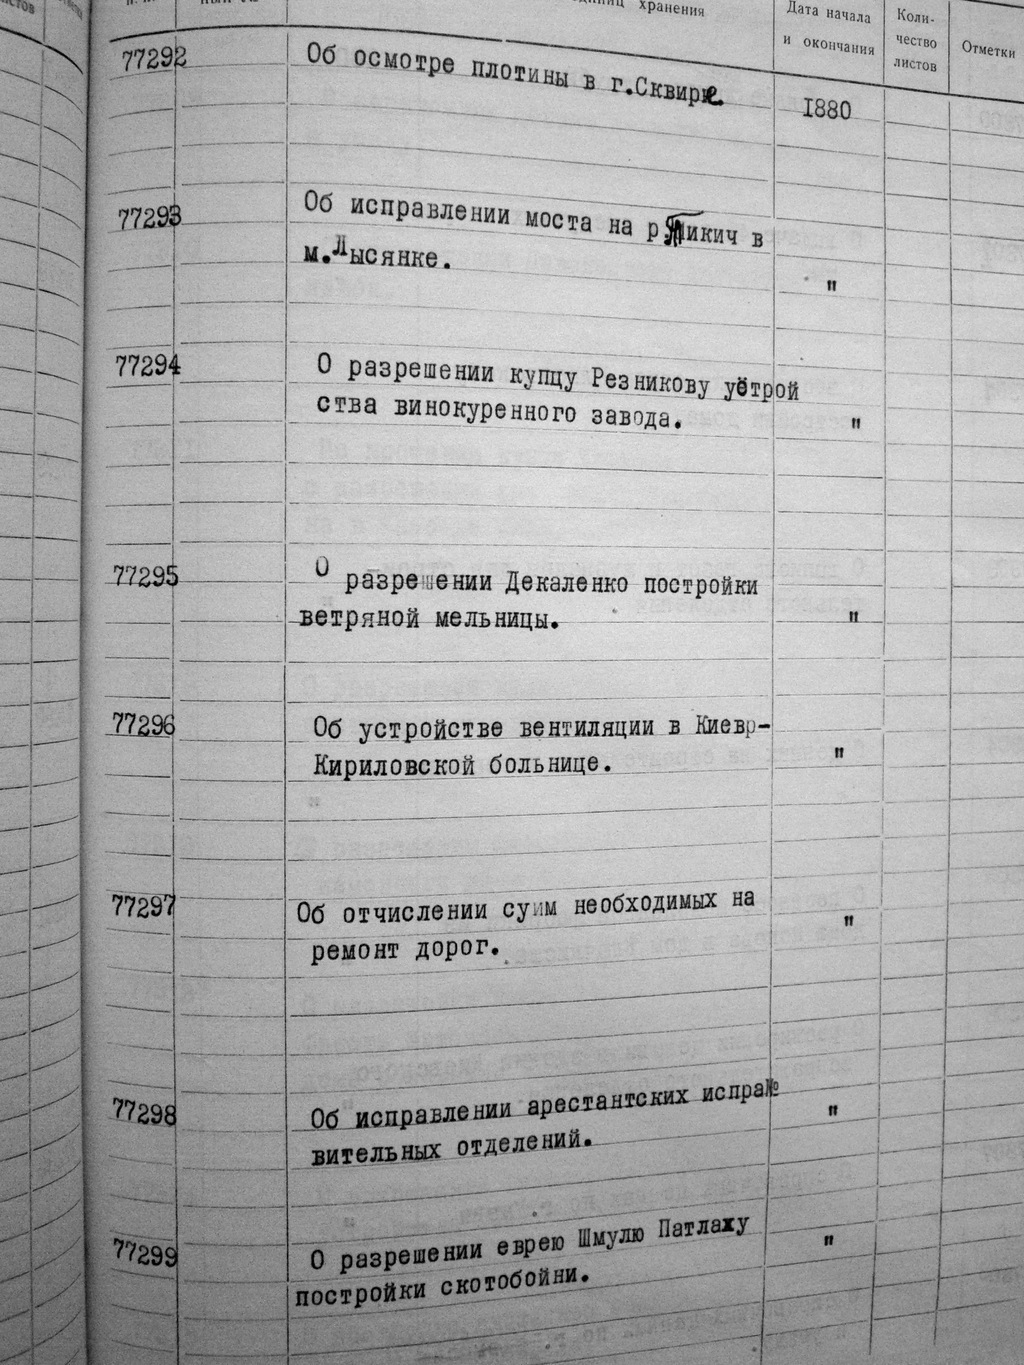 единиц хранения
Дата начала
и окончания
Коли-
чество
листов
Отметки
77292
Об осмотре плотины в г.Сквире.
1880
77293
Об исправлении моста на р.Тикич в
м.Лысянке.
"
77294
О разрешении купцу Резникову устрой
ства винокуренного завода.
"
77295
О разрешении Декаленко постройки
ветряной мельницы.
"
77296
Об устройстве вентиляции в Киевр-
Кириловской больнице.
"
77297
Об отчислении сумм необходимых на
ремонт дорог.
"
77298
Об исправлении арестантских испра№
вительных отделений.
"
77299
О разрешении еврею Шмулю Патлаху
постройки скотобойни.
"